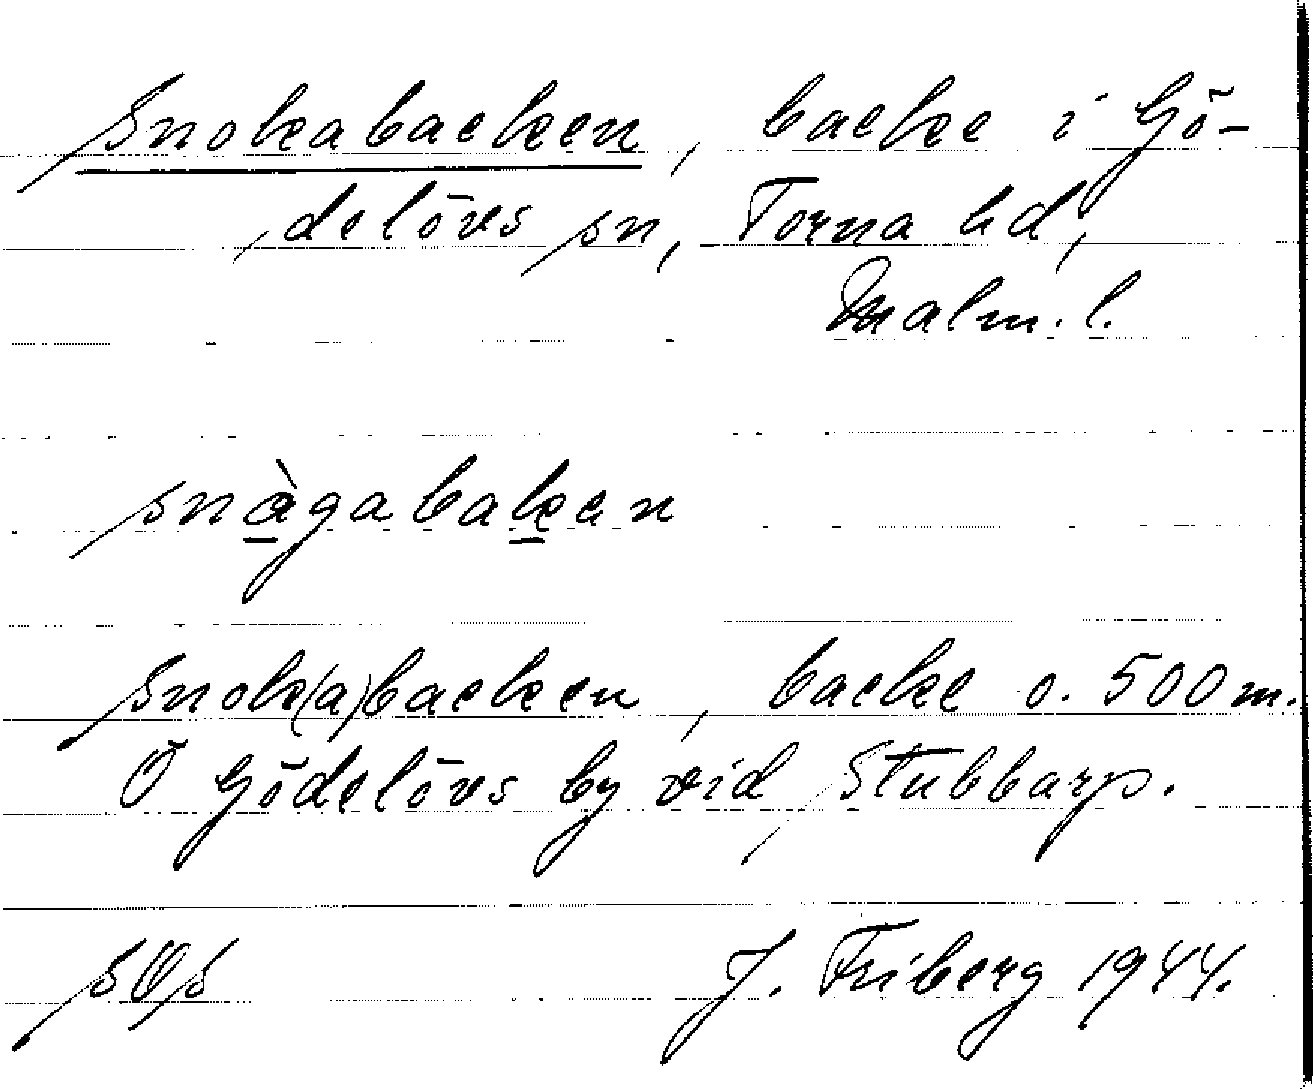 Snokabacken, backe i Gö-
delövs sn, Torna hd,
Malm. l.
snàgabakan
Snok(a)backen, backe o. 500 m.
Ö Gödelövs by vid Stubbarp.
SOS J. Friberg 1944.